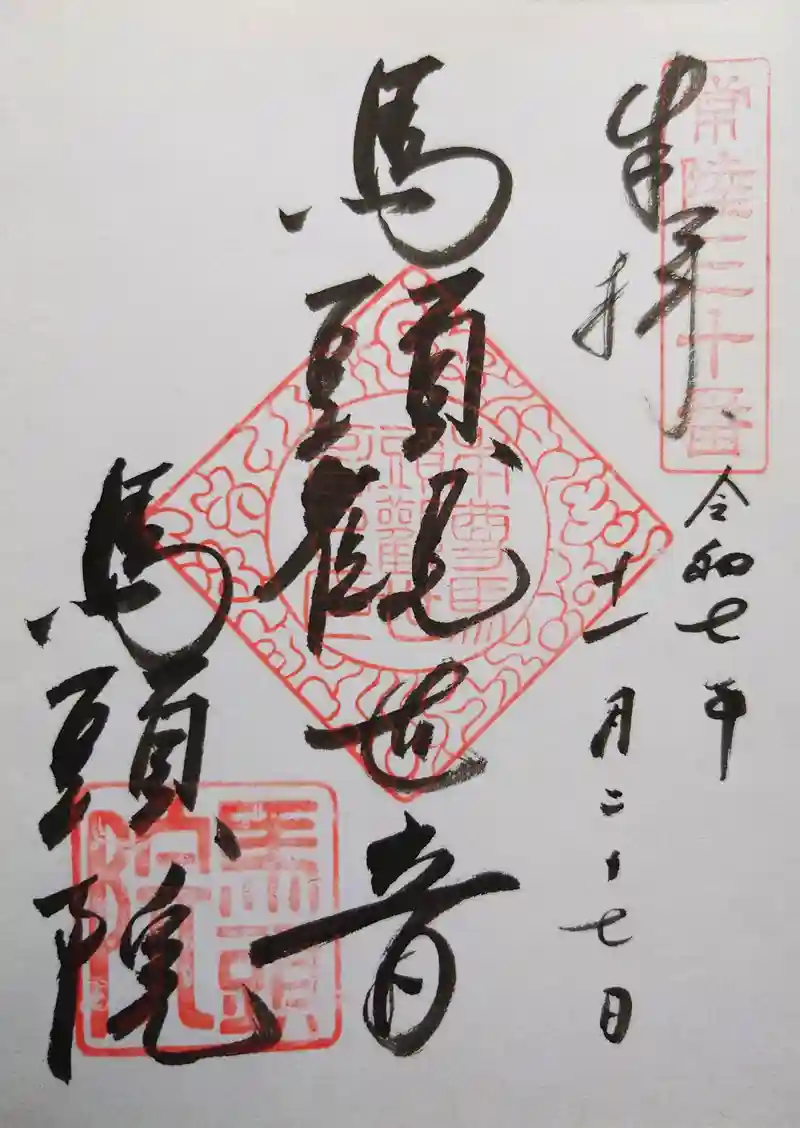 常陸三十番
奉拝
令和七年
十一月二十七日
馬頭観世音
本尊馬
頭観世
馬頭院
馬頭
院